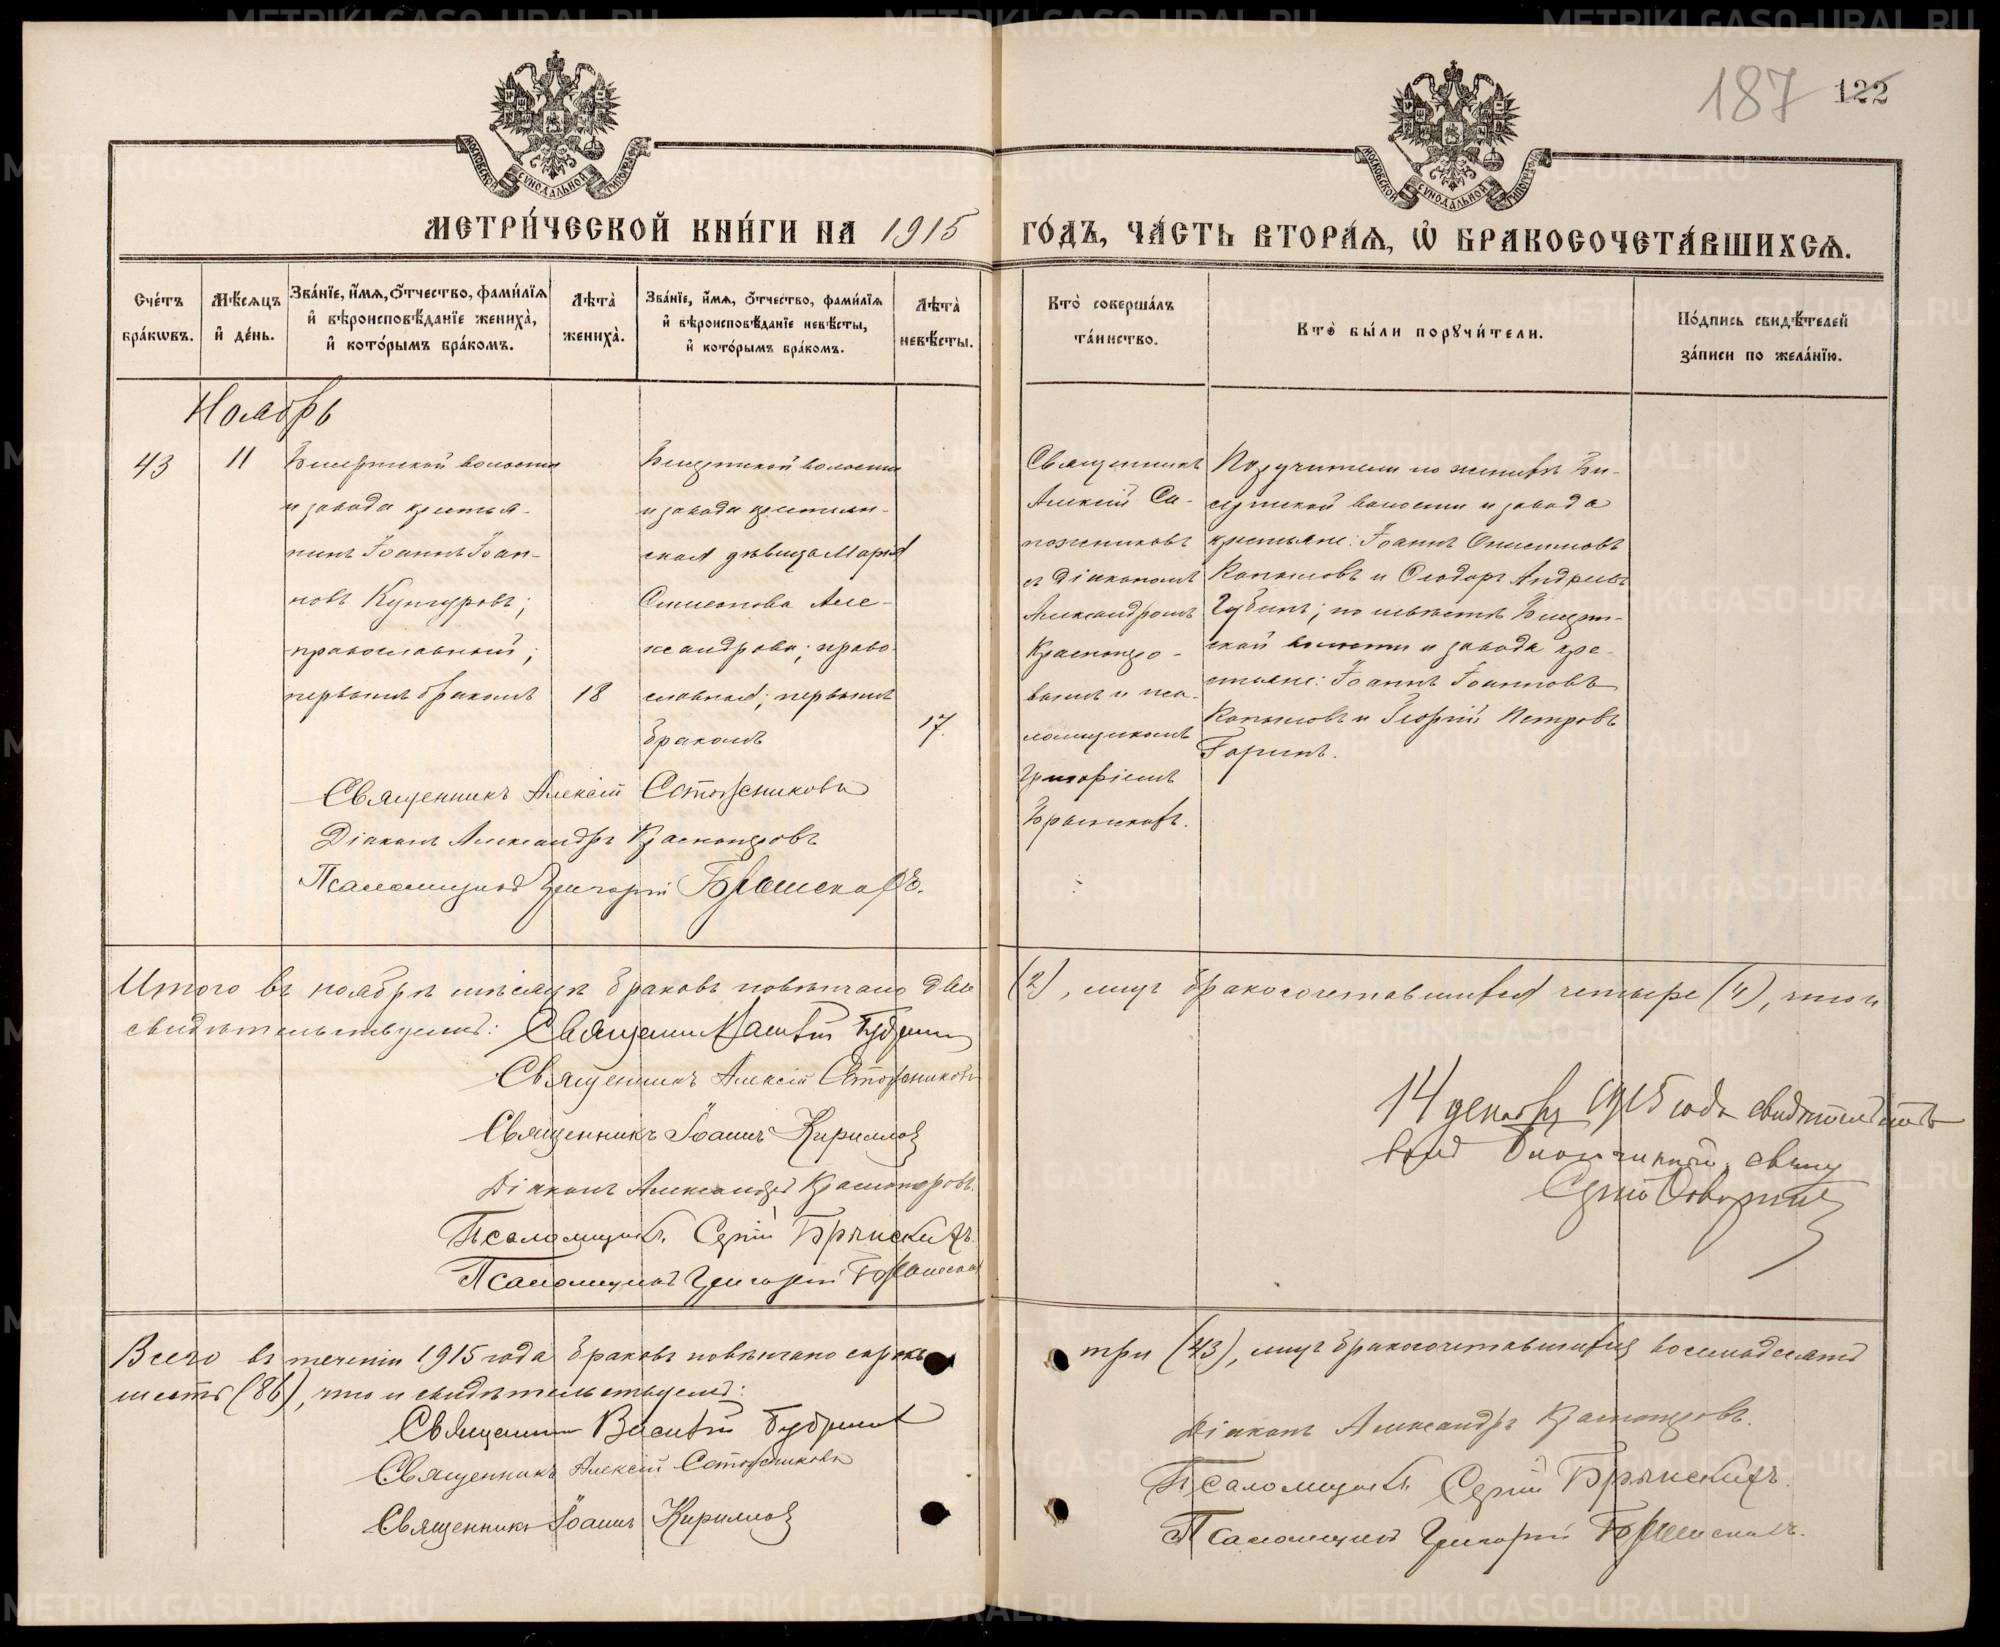 187 122
МОСКОВСКОЙ СѴНОДАЛЬНОЙ ТИПОГРАФІИ
МОСКОВСКОЙ СѴНОДАЛЬНОЙ ТИПОГРАФІИ
МЕТРИ́ЧЕСКОЙ КНИ́ГИ НА 1915 ГО́ДЪ, ЧА́СТЬ ВТОРА́Ѧ, Ѡ҆ БРАКОСОЧЕТА́ВШИХСѦ.
Сче́тъ бра́кѡвъ.
Мѣ́сѧцъ и҆ де́нь.
Зва́нїе, и҆́мѧ, ѻ҆́тчество, фами́лїѧ и҆ вѣроисповѣ́данїе жениха̀, и҆ кото́рымъ бра́комъ.
Лѣта̀ жениха̀.
Зва́нїе, и҆́мѧ, ѻ҆́тчество, фами́лїѧ и҆ вѣроисповѣ́данїе невѣ́сты, и҆ кото́рымъ бра́комъ.
Лѣта̀ невѣ́сты.
Кто̀ соверша́лъ та́инство.
Кто̀ бы́ли порꙋчи́тели.
По́дпись свидѣ́телей за́писи по жела́нїю.
Ноябрь
43
11
Бисертской волости
и завода крестья-
нинъ Іоаннъ Іоан-
новъ Кунгуровъ;
православный;
первымъ бракомъ
18
Бисертской волости
и завода крестьян-
ская дѣвица Марія
Симеонова Але-
ксандрова; право-
славная; первымъ
бракомъ
17.
Священникъ
Алексій Са-
пожниковъ
съ діакономъ
Александромъ
Красноперо-
вымъ и пса-
ломщикомъ
Григоріемъ
Поручители по женихѣ Би-
сертской волости и завода
крестьяне: Іоаннъ
Копыловъ и Ѳеодоръ Андреевъ
Губинъ; по невѣстѣ Бисерт-
ской волости и завода кре-
стьяне: Іоаннъ Іоанновъ
Копыловъ и Георгій Петровъ
Горинъ.
Священникъ Алексій Сапожниковъ
Діаконъ Александръ Красноперовъ
Псаломщикъ Григорій
Итого въ ноябрѣ мѣсяцѣ браковъ повѣнчано два (2), лицъ бракосочетавшихся четыре (4), что и
свидѣтельствуемъ:
Священникъ Алексій Сапожниковъ
Священникъ Іоаннъ Кирилловъ
Діаконъ Александръ Красноперовъ.
Псаломщикъ Сергій
Псаломщикъ Григорій
14 декабря 1915 года свидѣтельство
валъ Благочинный, священ
Сергій
Всего въ теченіи 1915 года браковъ повѣнчано сорокъ три (43), лицъ бракосочетавшихся восемьдесятъ
шесть (86), что и свидѣтельствуемъ:
Священникъ
Священникъ Алексій Сапожниковъ
Священникъ Іоаннъ Кирилловъ
Діаконъ Александръ Красноперовъ.
Псаломщикъ Сергій
Псаломщикъ Григорій
METRIKI.GASO-URAL.RU